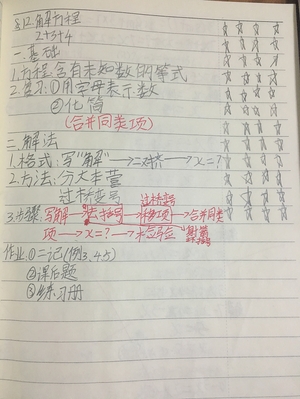 §12.解方程
2+3+4
一.基础
1.方程:含有未知数的等式
2.复习:①用字母表示数
②化简
(合并同类项)
二.解法
1.格式:写"解" → 二对齐 → x=?
2.方法:分大丰营
过桥变号
过桥变号
3.步骤:写解→去括号→移项→合并同类
项→x=?→检验→
作业:①二记(例3.4.5)
②课后题
③练习册